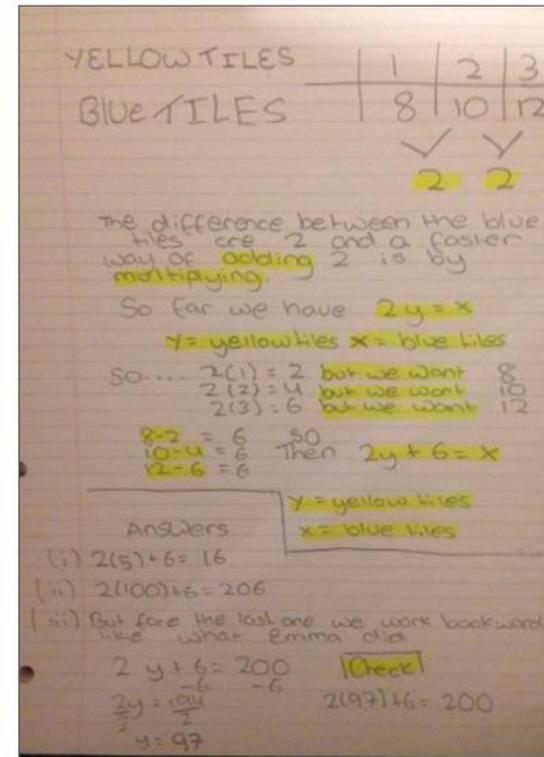 YELLOW TILES | 1 | 2 | 3
BLUE TILES | 8 | 10 | 12
2 2
The difference between the blue
tiles are 2 and a faster
way of adding 2 is by
moltiplying.
So far we have 2y = x
y = yellow tiles x = blue tiles
So.... 2(1) = 2 but we want 8
2(2) = 4 but we want 10
2(3) = 6 but we want 12
8-2 = 6 so
10-4 = 6 Then 2y + 6 = x
12-6 = 6
y = yellow tiles
Answers x = blue tiles
(i) 2(5)+6= 16
(ii) 2(100)+6= 206
(iii) But fore the last one we work backward
like what Emma did
2 y + 6 = 200 Check
-6 -6
2y = 194 2(97)+6= 200
2 2
y = 97